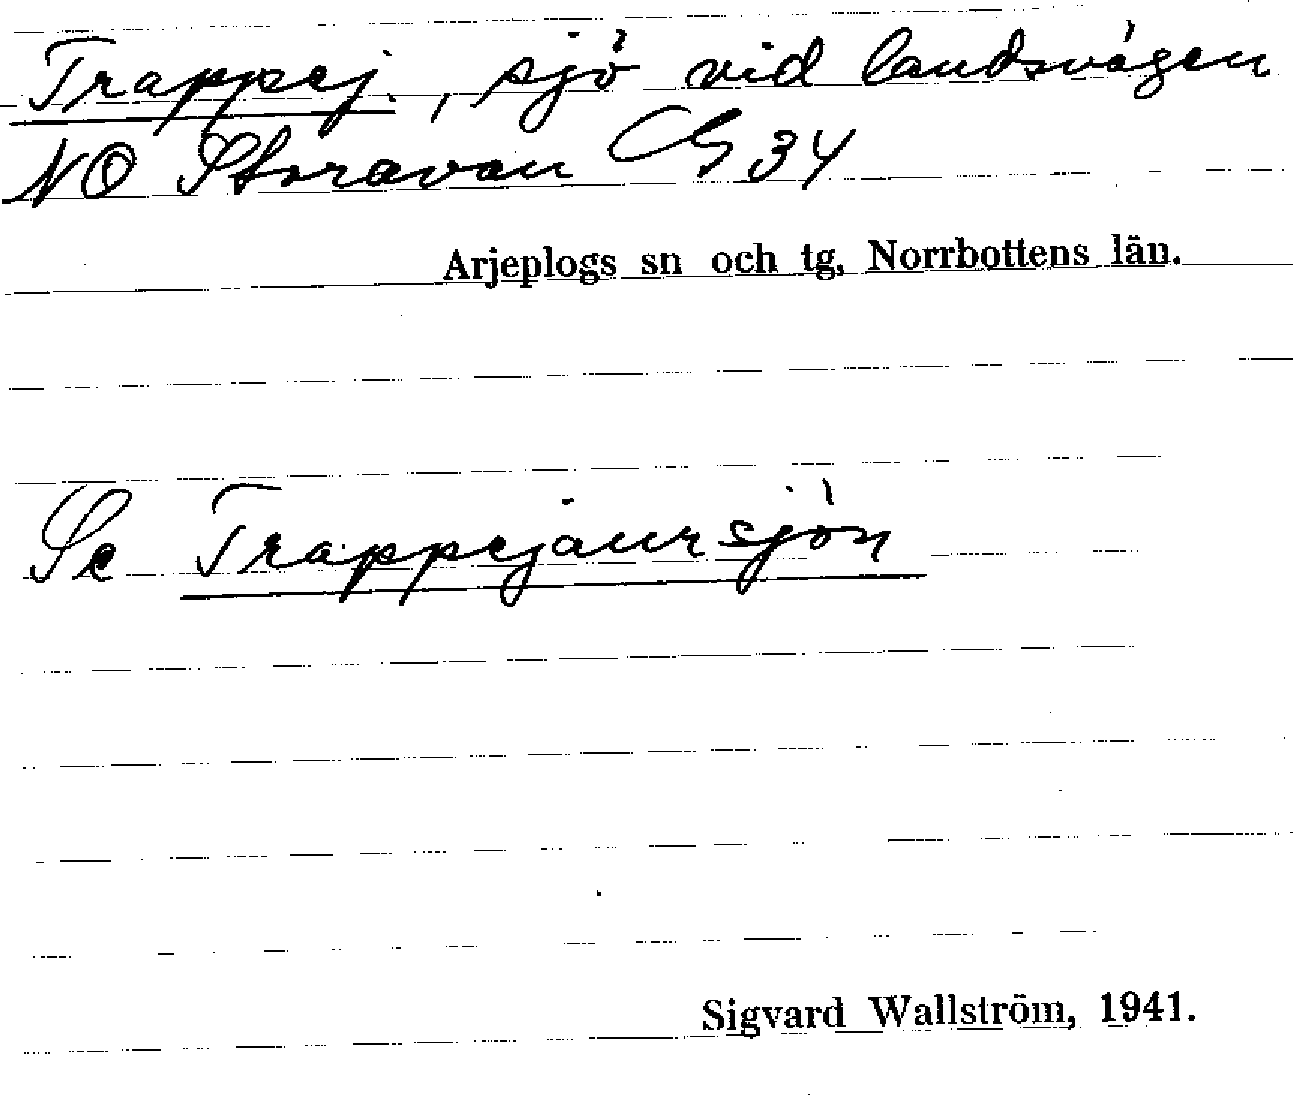 Trappej., sjö vid landsvägen
NO Storavan G34
Arjeplogs sn och tg, Norrbottens län.
Se Trappejaursjön
Sigvard Wallström, 1941.